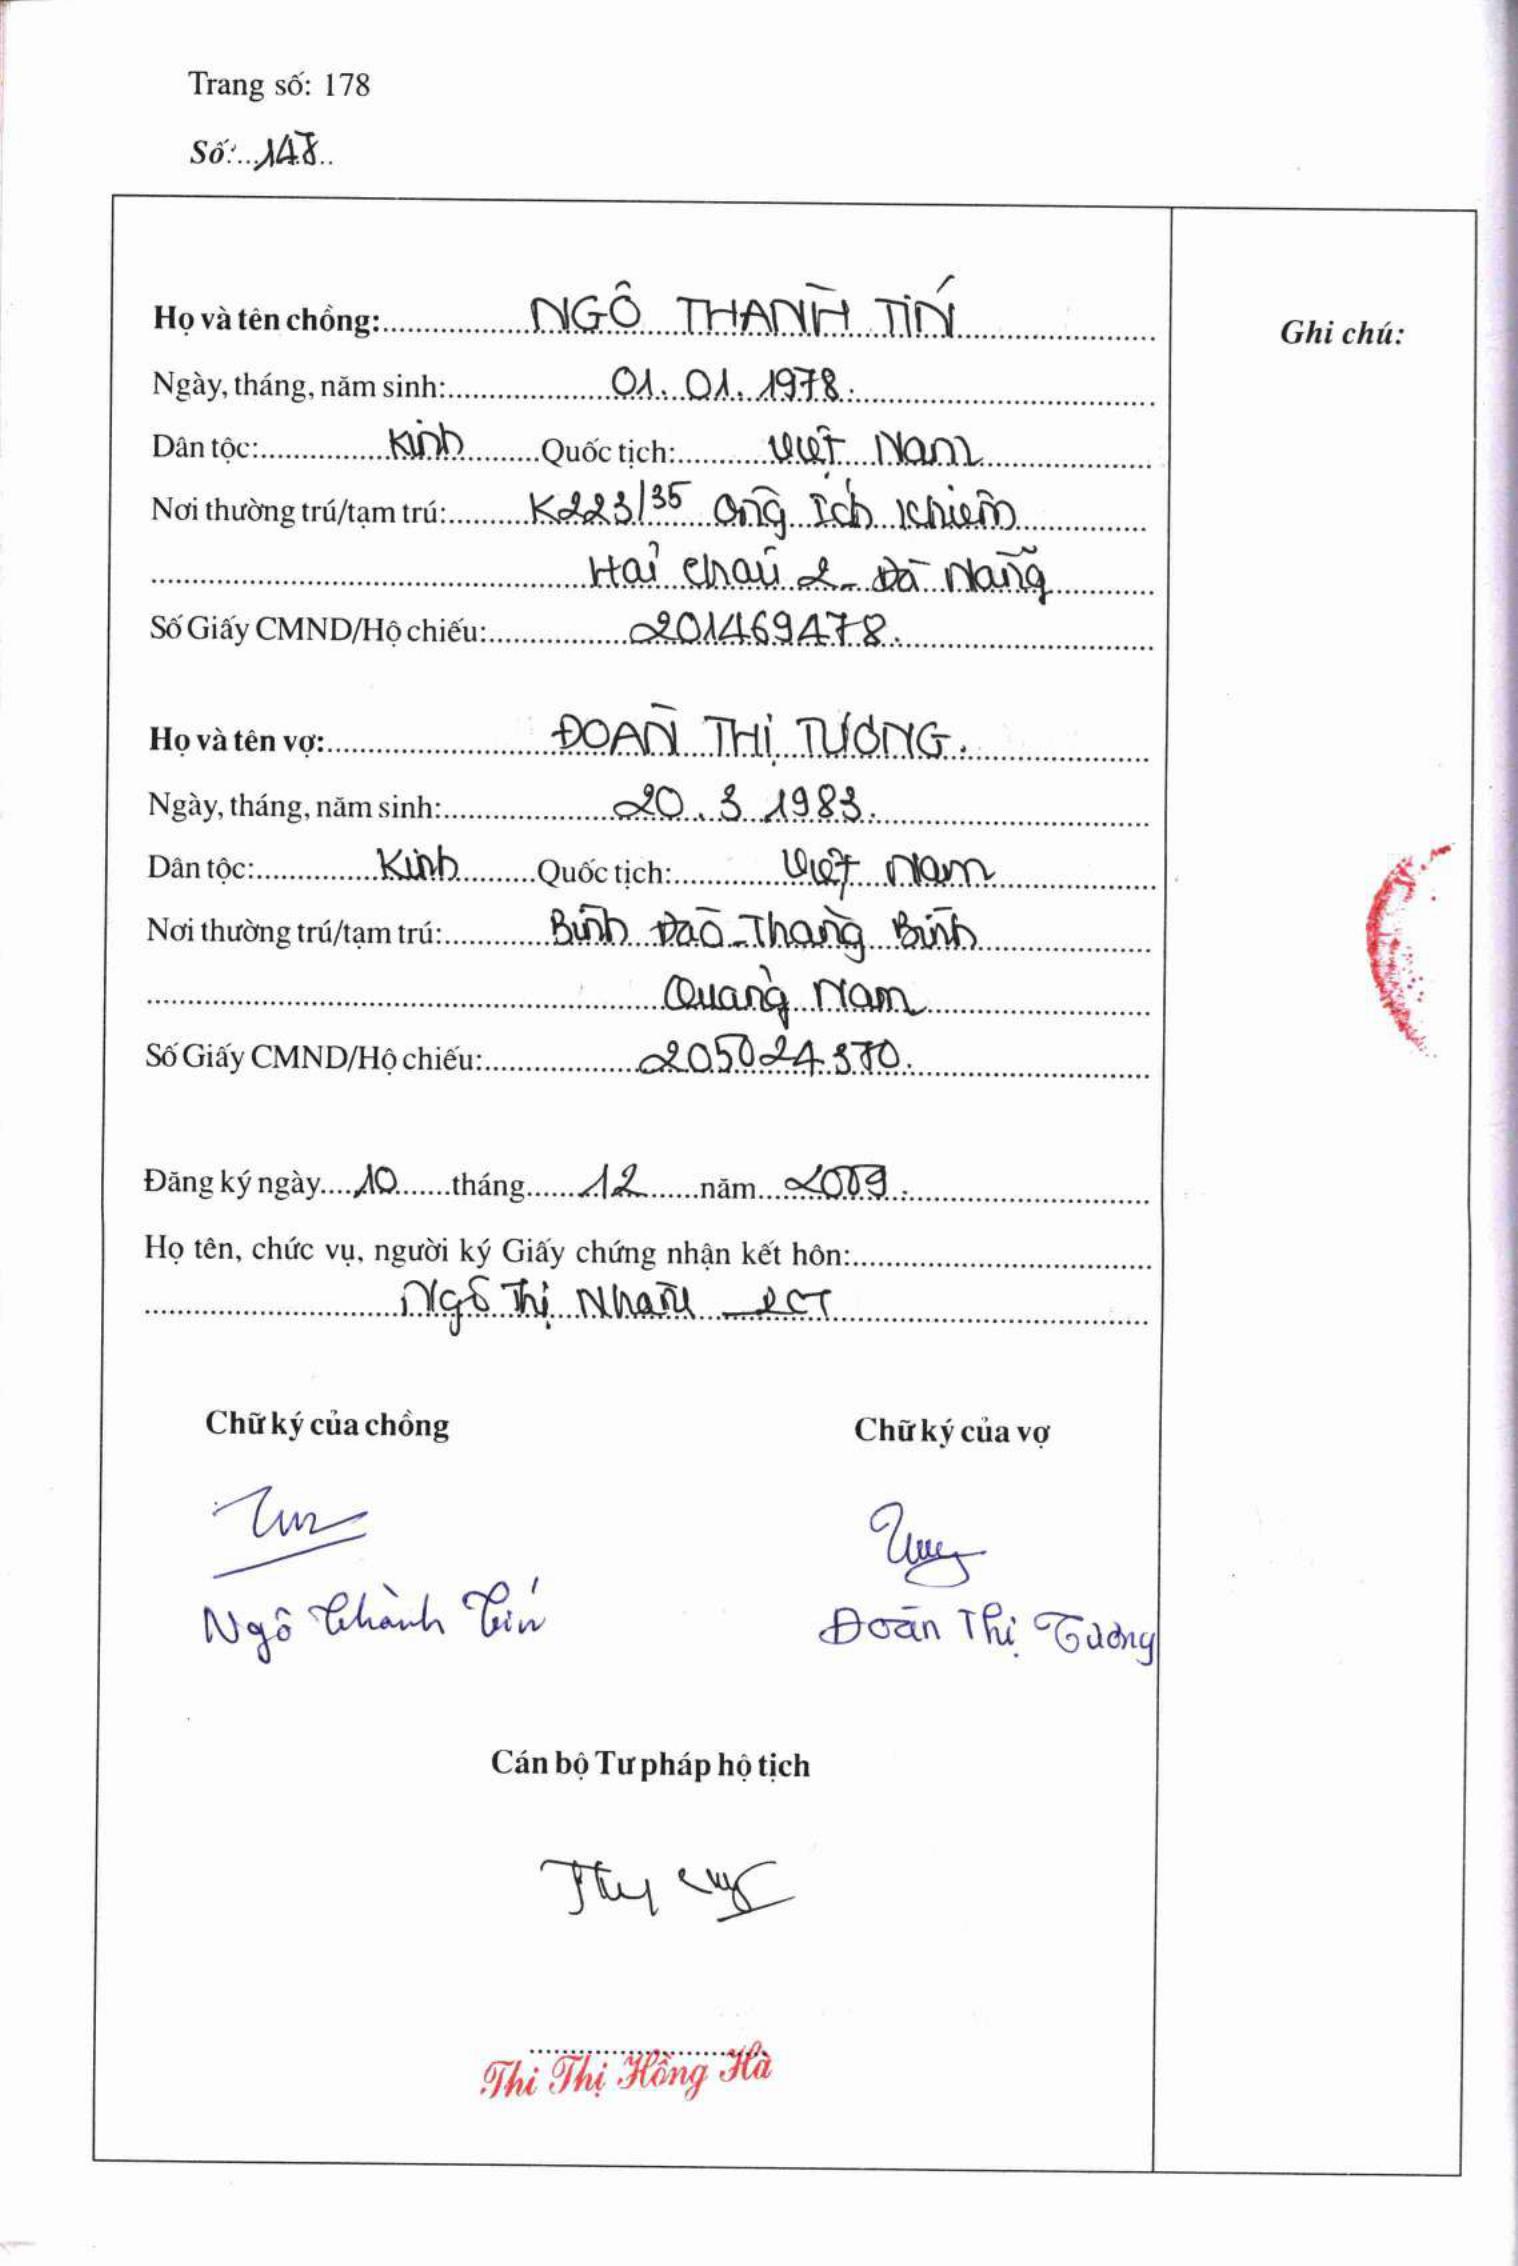 Trang số: 178
Số: 148
Họ và tên chồng: NGÔ THÀNH TÍN
Ghi chú:
Ngày, tháng, năm sinh: 01.01.1978.
Dân tộc: Kinh Quốc tịch: Việt Nam
Nơi thường trú/tạm trú: K223/35 Ông Ích Khiêm
Hải Châu 2 - Đà Nẵng
Số Giấy CMND/Hộ chiếu: 201469478.
Họ và tên vợ: ĐOÀN THỊ TƯỜNG.
Ngày, tháng, năm sinh: 20.3 1983.
Dân tộc: Kinh Quốc tịch: Việt Nam
Nơi thường trú/tạm trú: Bình Đào - Thăng Bình
Quảng Nam
Số Giấy CMND/Hộ chiếu: 205024370.
Đăng ký ngày 10 tháng 12 năm 2009.
Họ tên, chức vụ, người ký Giấy chứng nhận kết hôn:
Ngô Thị Nhàn - PCT
Chữ ký của chồng Chữ ký của vợ
Ngô Thành Tín Đoàn Thị Tường
Cán bộ Tư pháp hộ tịch
Thi Thị Hồng Hà